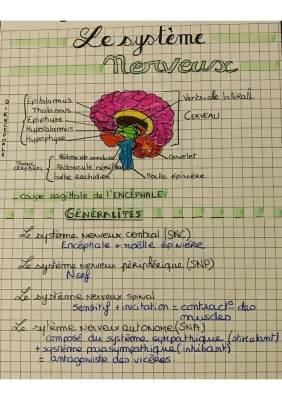 Le système
Nerveux
DIENCEPHALE
Epithalamus
Thalamus
Epiphyse
Hypothalamus
Hypophyse
Ventricule latérale
CERVEAU
Tronc
cérébral
Pédoncule cérébral
Bulbe Rachidien
Cervelet
Moelle épinière
coupe sagittale de l'ENCÉPHALE
GÉNÉRALITÉS
Le système nerveux central (SNC)
Encéphale + moëlle épinière
Le système nerveux périphérique (SNP)
Nerf
Le système nerveux spinal
Sensitif + incitation = contract° des
muscles
Le système nerveux autonome (SNA)
composé du système sympathique (stimulant)
+ système parasympathique (inhibant)
= antagoniste des vicères